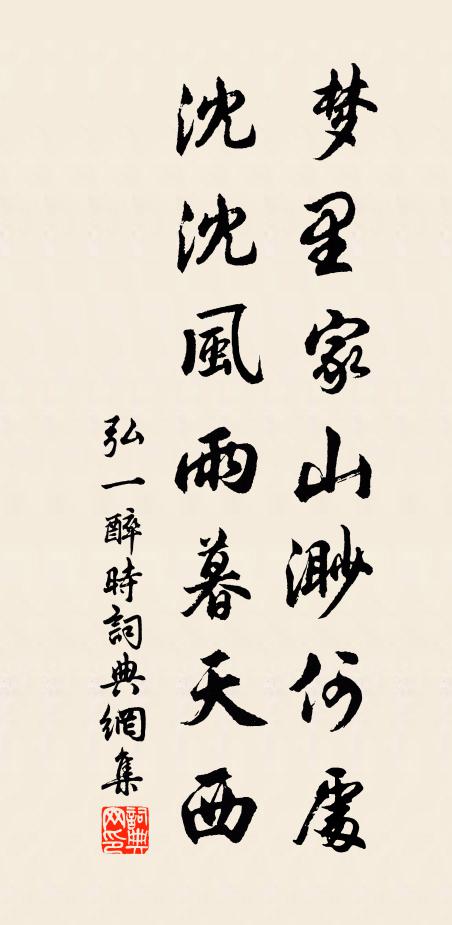 梦里家山渺何處
沈沈風雨暮天西
弘一醉時詞典網集
詞典网印